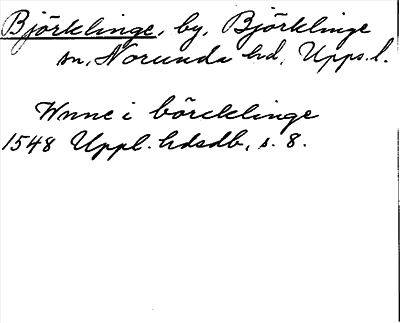 Björklinge, by, Björklinge
sn, Norunda hd, Upps. l.
Wnne i börcklinge
1548 Uppl. hdsdb, s. 8.